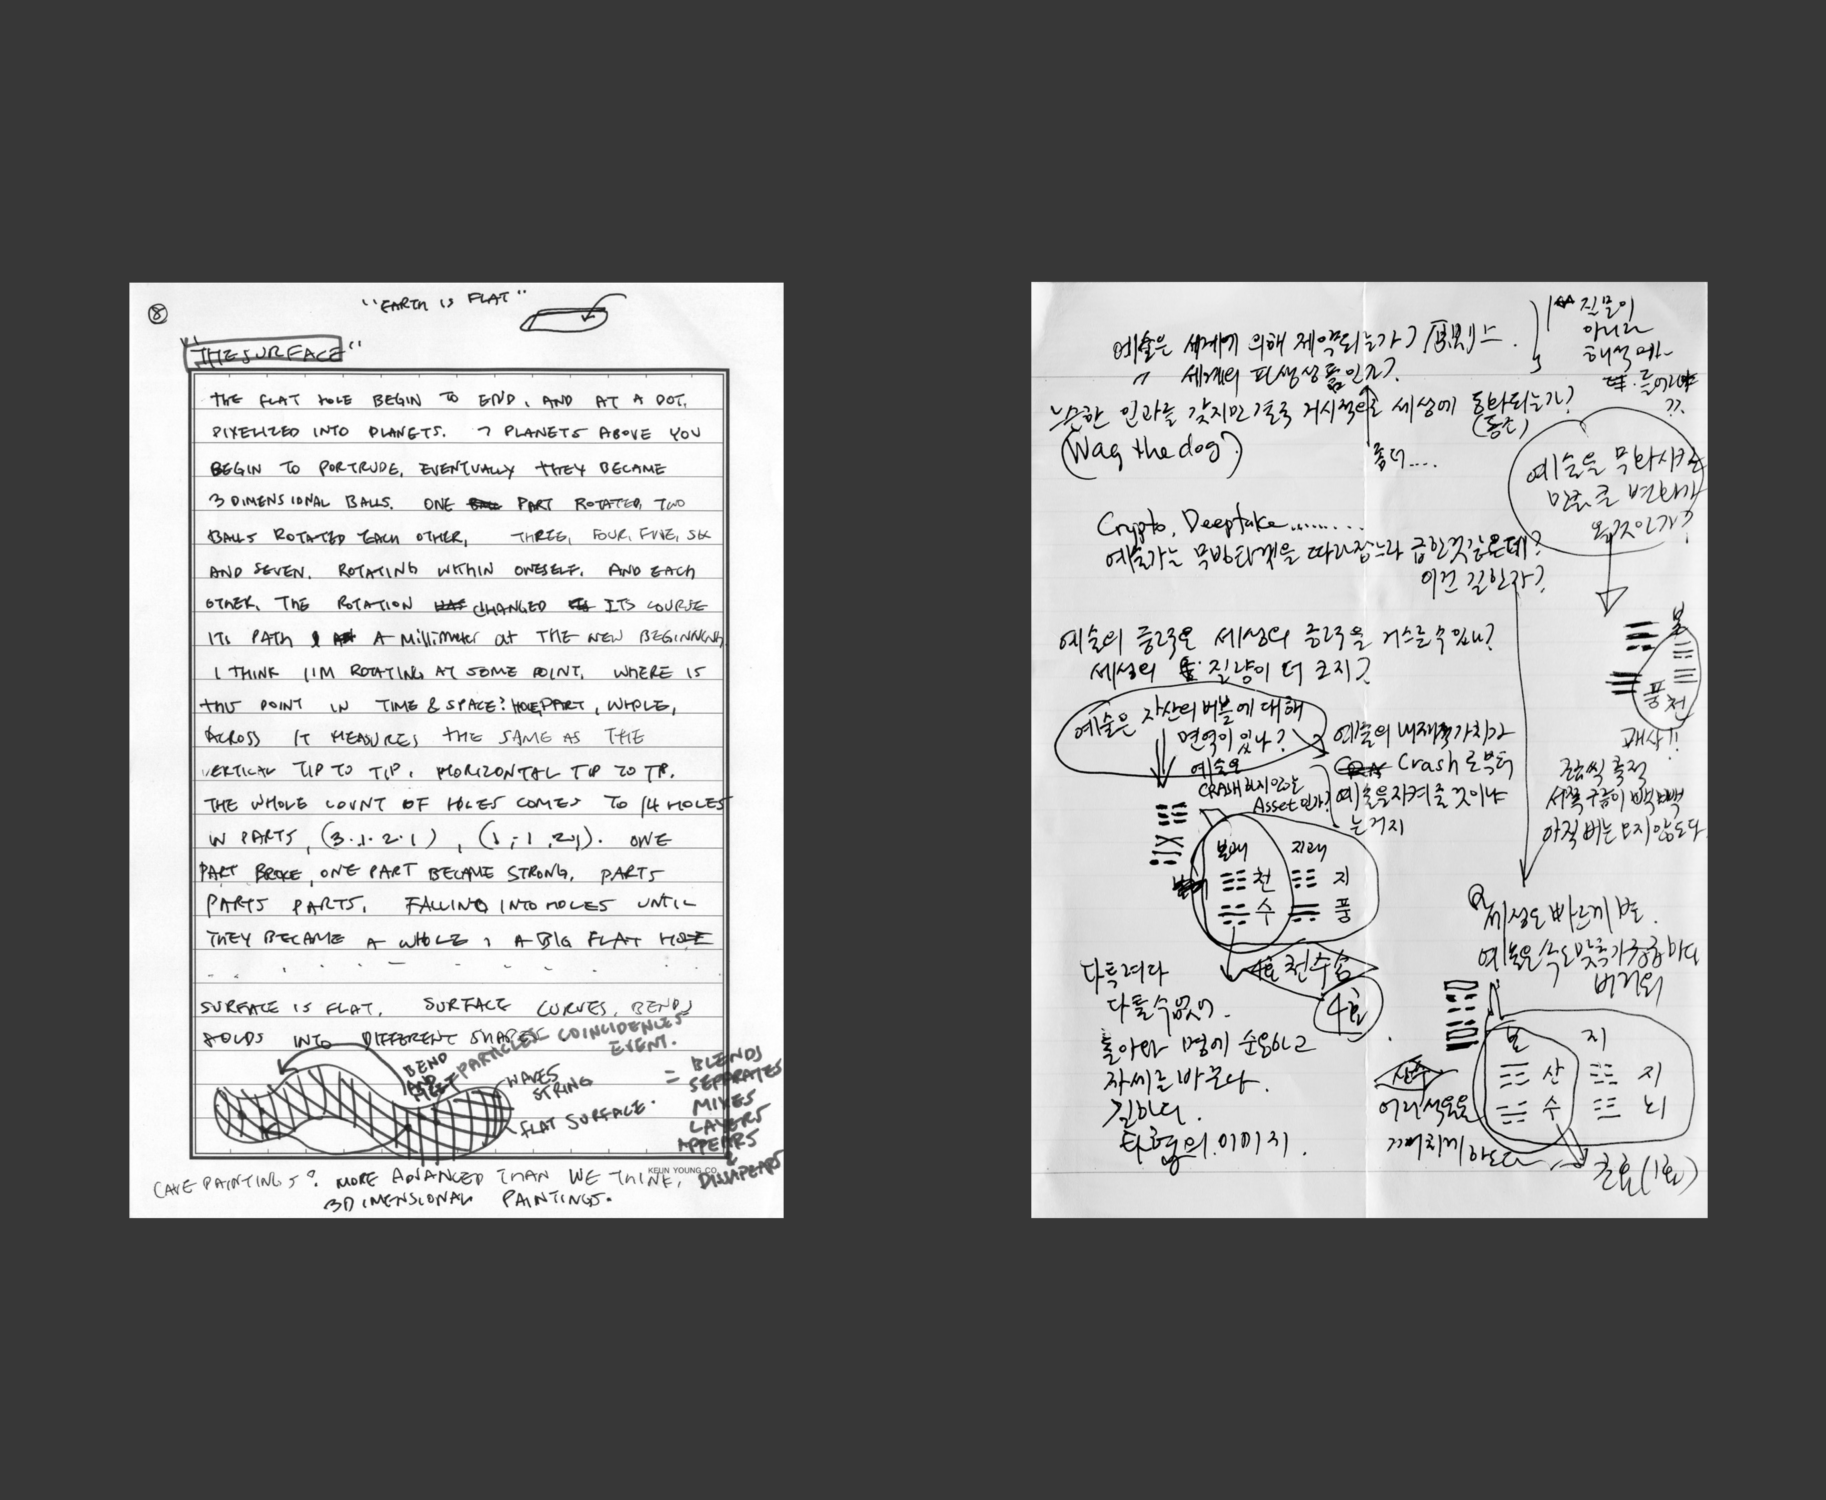 8
"EARTH IS FLAT"
"THE SURFACE"
THE FLAT HOLE BEGIN TO END, AND AT A DOT,
PIXELIZED INTO PLANETS. 7 PLANETS ABOVE YOU
BEGIN TO PORTRUDE, EVENTUALLY THEY BECAME
3 DIMENSIONAL BALLS. ONE PART ROTATED, TWO
BALLS ROTATED EACH OTHER, THREE, FOUR, FIVE, SIX
AND SEVEN. ROTATING WITHIN ONESELF. AND EACH
OTHER. THE ROTATION CHANGED ITS COURSE
ITS PATH A MILLIMETER at THE NEW BEGINNING
I THINK I'M ROTATING AT SOME POINT. WHERE IS
THIS POINT IN TIME & SPACE? HOLE, PART, WHOLE,
ACROSS IT MEASURES THE SAME AS THE
VERTICAL TIP TO TIP. HORIZONTAL TIP TO TIP.
THE WHOLE COUNT OF HOLES COMES TO 14 HOLES
IN PARTS, (3.1.2.1), (1,1,2,1). ONE
PART BROKE, ONE PART BECAME STRONG. PARTS
PARTS PARTS. FALLING INTO HOLES UNTIL
THEY BECAME A WHOLE, A BIG FLAT HOLE
SURFACE IS FLAT. SURFACE CURVES, BENDS
FOLDS INTO DIFFERENT SHAPES
BEND AND MEET
PARTICLES COINCIDENCES
EVENT.
WAVES
STRING
FLAT SURFACE.
= BLENDS
SEPARATES
MIXES
LAYERS
APPEARS
&
DISAPPEARS
KEUN YOUNG CO.
CAVE PAINTINGS? MORE ADVANCED THAN WE THINK,
3DIMENSIONAL PAINTINGS.
예술은 세계에 의해 제약되는가?
세계의 파생상품인가?
질문이
아니라
느슨한 인과를 갖지만 결국 거시적으로 세상에 동화되는가?
(Wag the dog?)
좀 더....
예술을 독화시키는
만큼 큰 변화가
올것인가?
Crypto, Deepfake........
예술가는 따라잡느라 급한것같은데?
이건 길한가?
예술의 중력은 세상의 중력을 거스를 수 있나?
세상의 질량이 더 크지?
예술은 자산의 버블에 대해
면역이 있나?
예술은
CRASH 하지 않는
Asset 인가?
예술의 내재적 가치가
Crash 로부터
예술을 지켜줄 것이냐
는거지
본
풍천
괘상!!
조금씩 축적
서쪽 구름이 빽빽
아직 비는 오지 않는다
본괘 지괘
천 지
수 풍
천수송
4효
다투려다
다툴 수 없어.
돌아와 명에 순응하고
자세를 바꾼다.
길하다.
타협의 이미지.
세상은 빠르게 변.
예술은 속도 맞추기
버거워
본 지
산 지
수 뇌
산수
어리석음을
깨우치게 하는데
초효(1효)